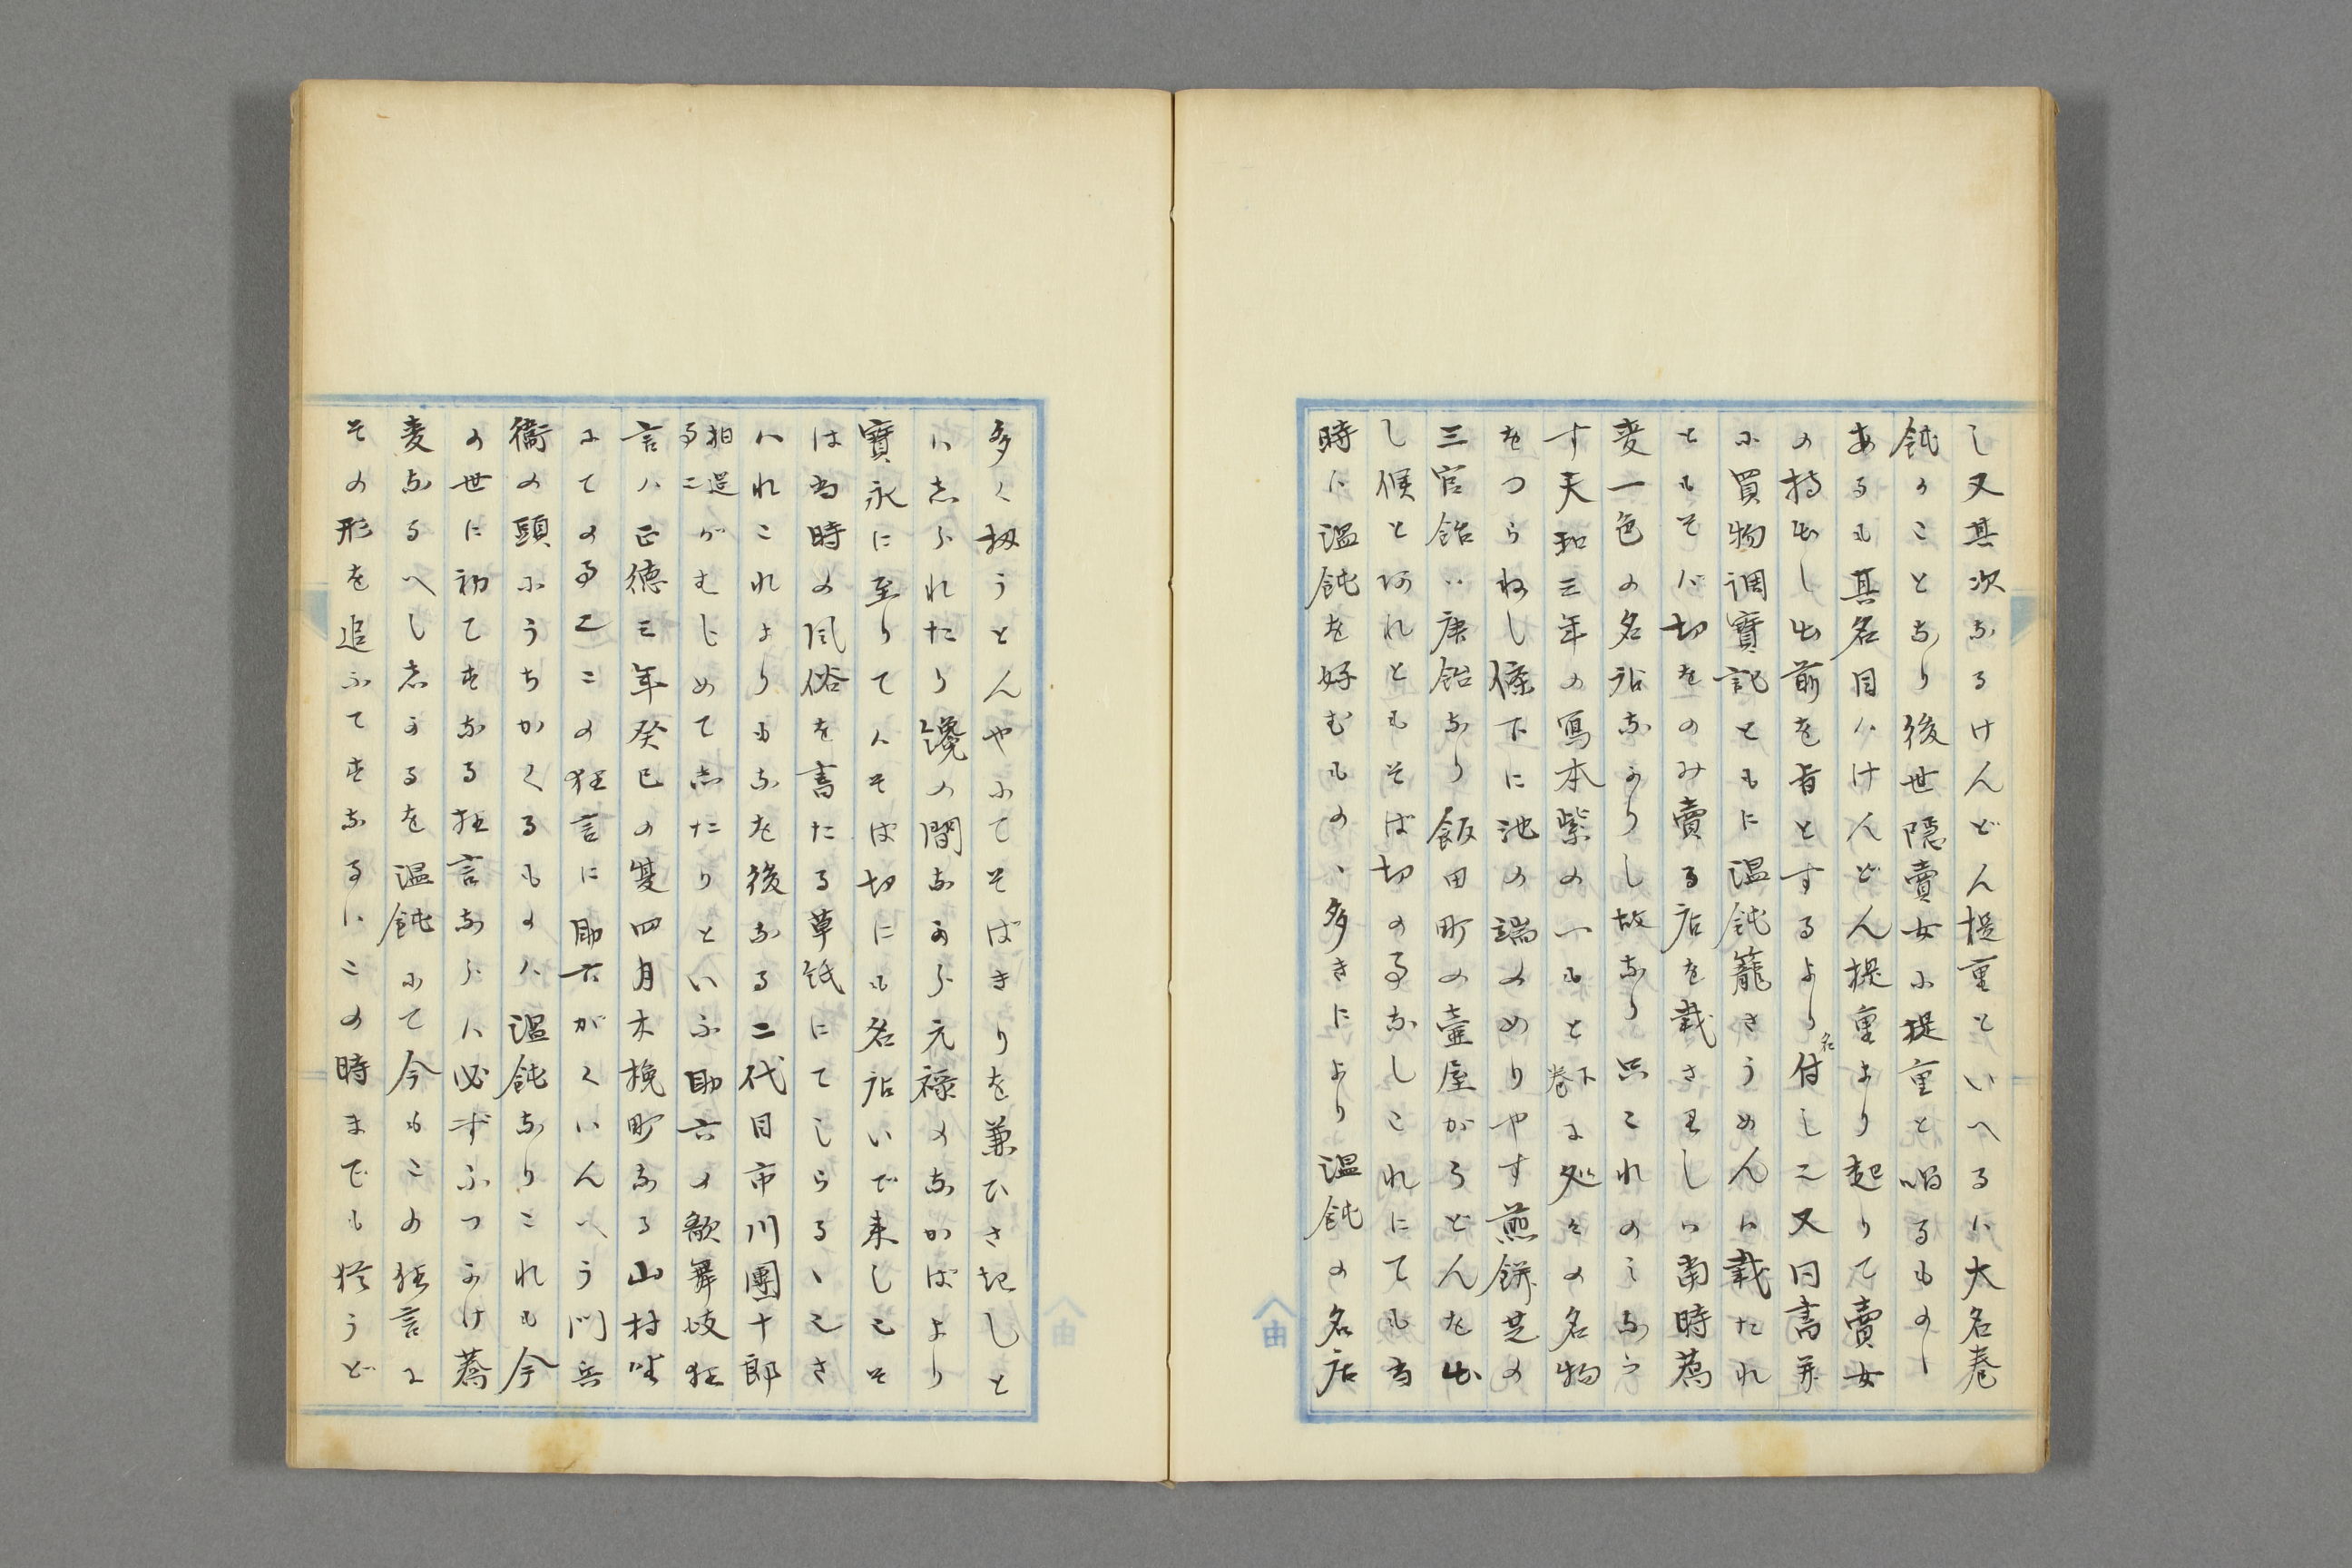 し又其次なるけんどん提重といへるハ大名巻
鈍のことなり後世隠賣女ふ提重と唱るもの
あるも其名目ハけんどん提重より起りて賣女
の持出し出前を旨とするより名付し之又同書并
ふ買物調寶記ともに温飩籠さうめんハ載たれ
ともそバ切をのみ賣る店を載さりしハ南時蕎
麦一色の名店なかりし故なり只これのミなら
す天和三年の写本紫の一もと下巻に処々の名物
をつらねし條下に池の端のめりやす煎餅芝の
三官飴ハ唐飴なり飯田町の壷屋がうどんを出
し候と阿れともそば切の事なしこれにても当
時ハ温飩を好むものゝ多きにより温飩の名店
多く扨うとんやふてそばきりを兼ひさきしと
ハしられたり讒の間ながら元禄のなかばより
寶永に至りて八そば切にも名店いで来し也そ
は当時の風俗を書たる草紙にてしらるゝ也さ
ハれこれよりもなを後なる二代目市川團十郎
柏莚事がむじめて志たりといふ助六の歌舞妓狂
言ハ正徳三年癸巳の夏四月木挽町なる山村坐
ふての事也この狂言に助六がくハんぺう門兵
衛の頭ふうちかくるものハ温飩なりこれも今
の世に初てすなる狂言ならハ必ずふつかけ蕎
麦なるへし志かるを温飩ふて今もこの狂言に
その形を追ふてすなるハこの時までも猶うど